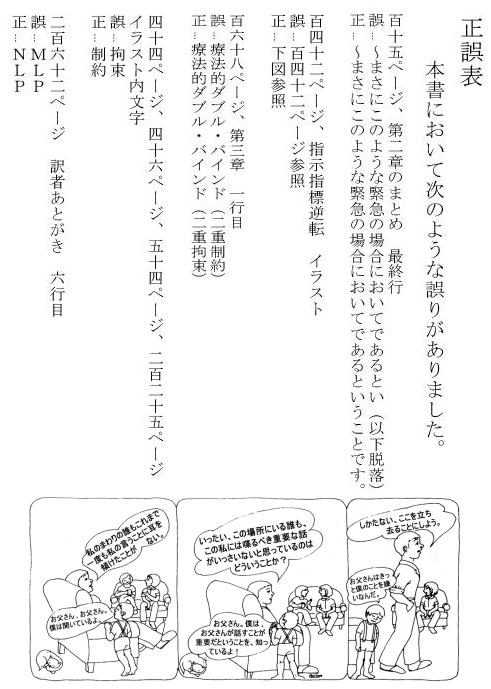 正誤表
本書において次のような誤りがありました。
百十五ページ、第二章のまとめ　最終行
誤…～まさにこのような緊急の場合においてであるとい（以下脱落）
正…～まさにこのような緊急の場合においてであるということです。
百四十二ページ、指示指標逆転　イラスト
誤…百四十二ページ参照
正…下図参照
百六十八ページ、第三章　一行目
誤…療法的ダブル・バインド（二重制約）
正…療法的ダブル・バインド（二重拘束）
四十四ページ、四十六ページ、五十四ページ、二百二十五ページ
イラスト内文字
誤…拘束
正…制約
二百六十二ページ　訳者あとがき　六行目
誤…MLP
正…NLP
しかたない、ここを立ち
去ることにしよう。
お父さんはきっ
と僕のことを嫌
いなんだ。
いったい、この場所にいる誰も、
この私には喋るべき重要な話
がいっさいないと思っているのは
どういうことか？
お父さん。僕は、
お父さんが話すことが
重要だということを、知っ
ているよ！
私のまわりの誰もこれまで
一度も私の言うことに耳を
傾けたことが　ない。
お父さん、お父さん。
僕は聞いているよ。